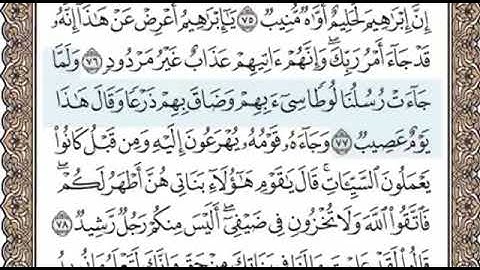 إِنَّ إِبْرَٰهِيمَ لَحَلِيمٌ أَوَّٰهٌ مُّنِيبٌ ٧٥ يَٰٓإِبْرَٰهِيمُ أَعْرِضْ عَنْ هَٰذَآ إِنَّهُۥ
قَدْ جَآءَ أَمْرُ رَبِّكَ وَإِنَّهُمْ ءَاتِيهِمْ عَذَابٌ غَيْرُ مَرْدُودٍ ٧٦ وَلَمَّا
جَآءَتْ رُسُلُنَا لُوطًا سِىٓءَ بِهِمْ وَضَاقَ بِهِمْ ذَرْعًا وَقَالَ هَٰذَا
يَوْمٌ عَصِيبٌ ٧٧ وَجَآءَهُۥ قَوْمُهُۥ يُهْرَعُونَ إِلَيْهِ وَمِن قَبْلُ كَانُوا۟
يَعْمَلُونَ ٱلسَّيِّـَٔاتِ قَالَ يَٰقَوْمِ هَٰٓؤُلَآءِ بَنَاتِى هُنَّ أَطْهَرُ لَكُمْ
فَٱتَّقُوا۟ ٱللَّهَ وَلَا تُخْزُونِ فِى ضَيْفِىٓ أَلَيْسَ مِنكُمْ رَجُلٌ رَّشِيدٌ ٧٨
قَالُوا۟ لَقَدْ عَلِمْتَ مَا لَنَا فِى بَنَاتِكَ مِنْ حَقٍّ وَإِنَّكَ لَتَعْلَمُ مَا نُرِيدُ